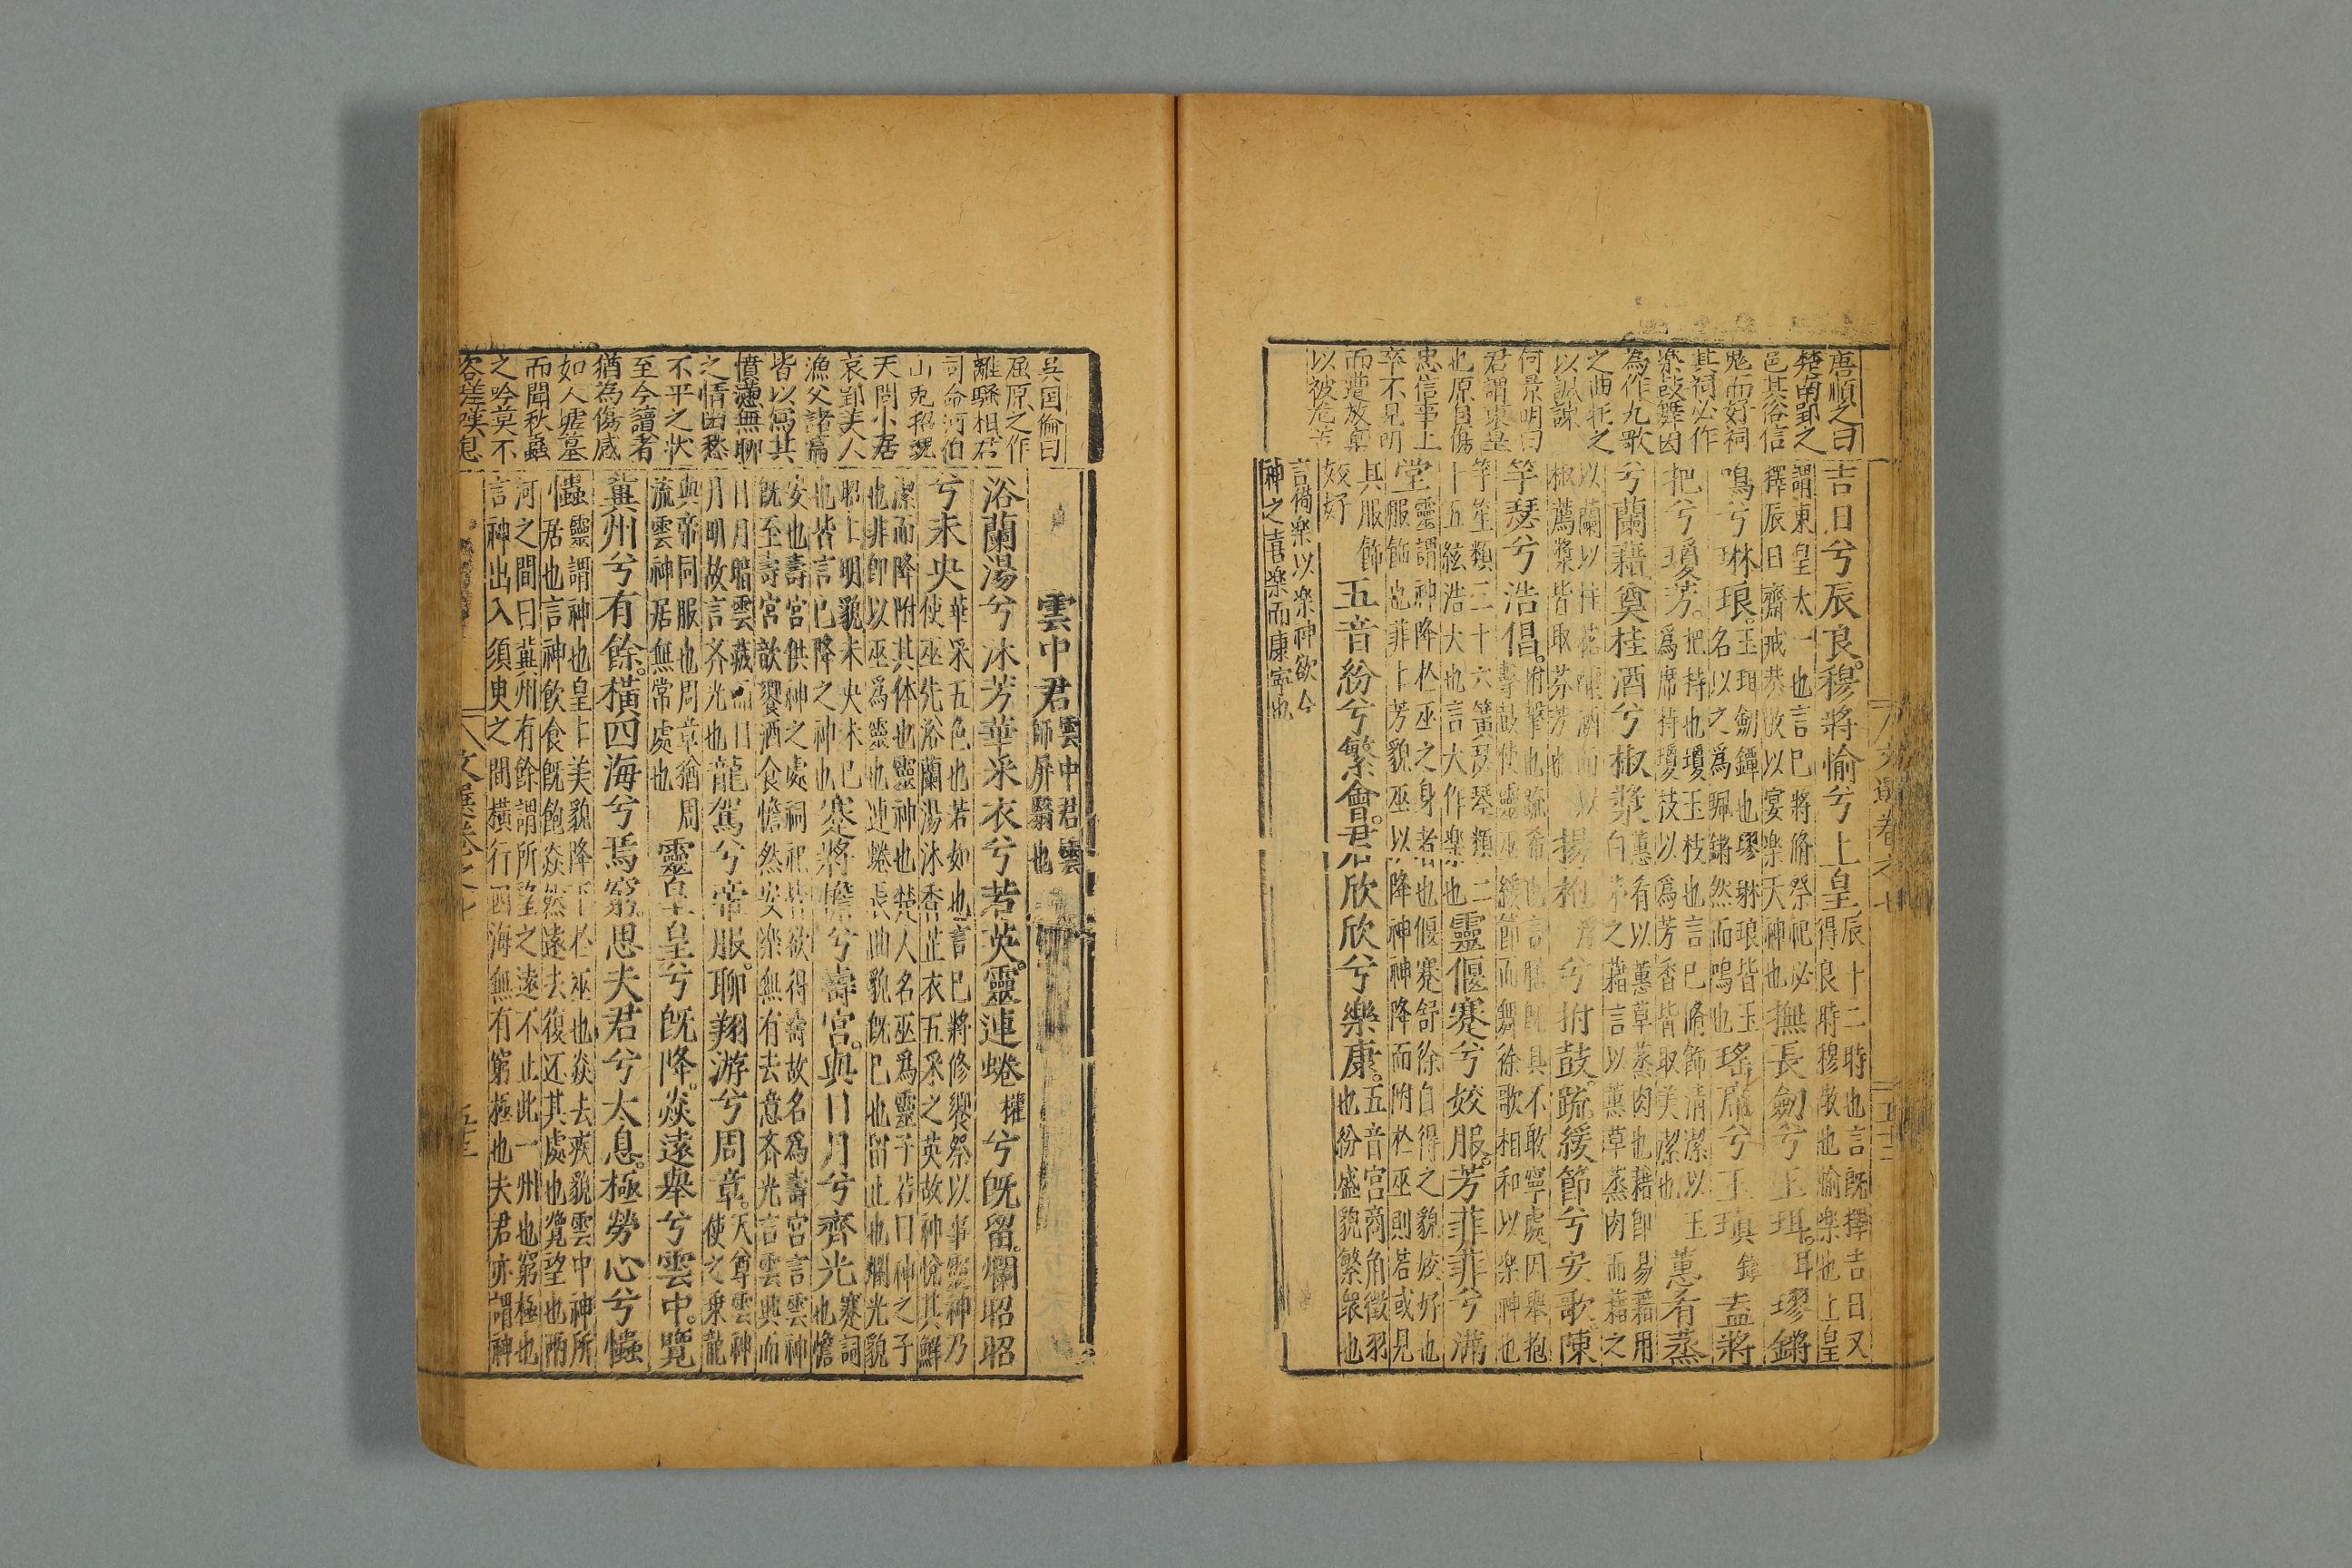 唐順之曰
楚南郢之
邑其俗信
鬼而好祠
其祠必作
樂鼓舞因
為作九歌
之曲托之
以諷諫
何景明曰
君謂東皇
也原自傷
忠信事上
卒不見明
而遭放棄
以被危苦
文選卷之七
五十二
吉日兮辰良。穆將愉兮上皇辰十二時也言既擇吉日又得良時穆敬也愉樂也上皇
謂東皇太一也言巳將脩祭祀必擇辰日齋戒恭敬以宴樂天神也撫長劔兮玉珥。耳璆鏘
鳴兮琳琅。玉珥劔鐔也璆琳琅皆玉名以之爲珮鏘然而鳴也瑤席兮玉瑱鎮盍將
把兮瓊芳。把持也瓊玉枝也言巳脩飾清潔以玉爲席持瓊枝以爲芳香皆取美潔也蕙肴蒸
兮蘭藉奠桂酒兮椒漿蕙肴以蕙草蒸肉也藉卽易藉用白茅之藉言以蕙草蒸肉而藉之
以蘭以桂花釀酒而以椒薦漿皆取芬芳也揚枹浮兮拊鼓。疏緩節兮安歌陳
竽瑟兮浩倡。拊擊也疏希也言膳既具不敢寧處因舉抱擊鼓使靈巫緩節而舞徐歌相和以樂神也
竽笙類三十六簧瑟琴類二十五絃浩大也言大作樂也靈偃蹇兮姣服。芳菲菲兮滿
堂靈謂神降於巫之身者也偃蹇舒徐自得之貌姣好也服飾也菲菲芳貌巫以降神神降而附於巫則若或見
其服飾姣好五音紛兮繁會。君欣欣兮樂康。五音宮商角徵羽也紛盛貌繁衆也
言備樂以樂神欲令神之喜樂而康寧也
吳国倫曰
屈原之作
離騷相君
司命河伯
山鬼招魂
天問卜居
哀郢美人
漁父諸篇
皆以寫其
憤懣無聊
之情幽愁
不平之狀
至今讀者
猶為傷感
如人墟墓
而聞秋蟲
之吟莫不
咨嗟嘆息
雲中君雲中君雲師屏翳也
浴蘭湯兮沐芳華采衣兮若英。靈連蜷權兮既留。爛昭昭
兮未央華采五色也若如也言巳將修饗祭以事靈神乃使巫先浴蘭湯沐香芷衣五采之英故神悅其鮮
潔而降附其体也靈神也楚人名巫爲靈子若曰神之子也非卽以巫爲靈也連蜷長曲貌既巳也留止也爛光貌
昭上明貌未央未巳也皆言巳降之神也蹇將憺兮壽宮。與日月兮齊光蹇詞也憺
安也壽宮供神之處祠祀皆欲得壽故名爲壽宮言雲神既至壽宮歆饗酒食憺然安樂無有去意齊光言雲興而
日月暗雲藏而日月明故言齊光也龍駕兮帝服。聊翱游兮周章。天尊雲神使之乘龍
與帝同服也周章猶周流雲神居無常處也靈皇皇兮既降。焱遠舉兮雲中。覽
冀州兮有餘。橫四海兮焉窮。思夫君兮太息。極勞心兮㦬
㦬靈謂神也皇上美貌降下於巫也焱去疾貌雲中神所居也言神飲食既飽焱然遠去復还其處也覽望也兩
河之間曰冀州有餘謂所望之遠不止此一州也窮極也言神出入須臾之間橫行四海無有窮極也夫君亦謂神
文選卷之七
五十三